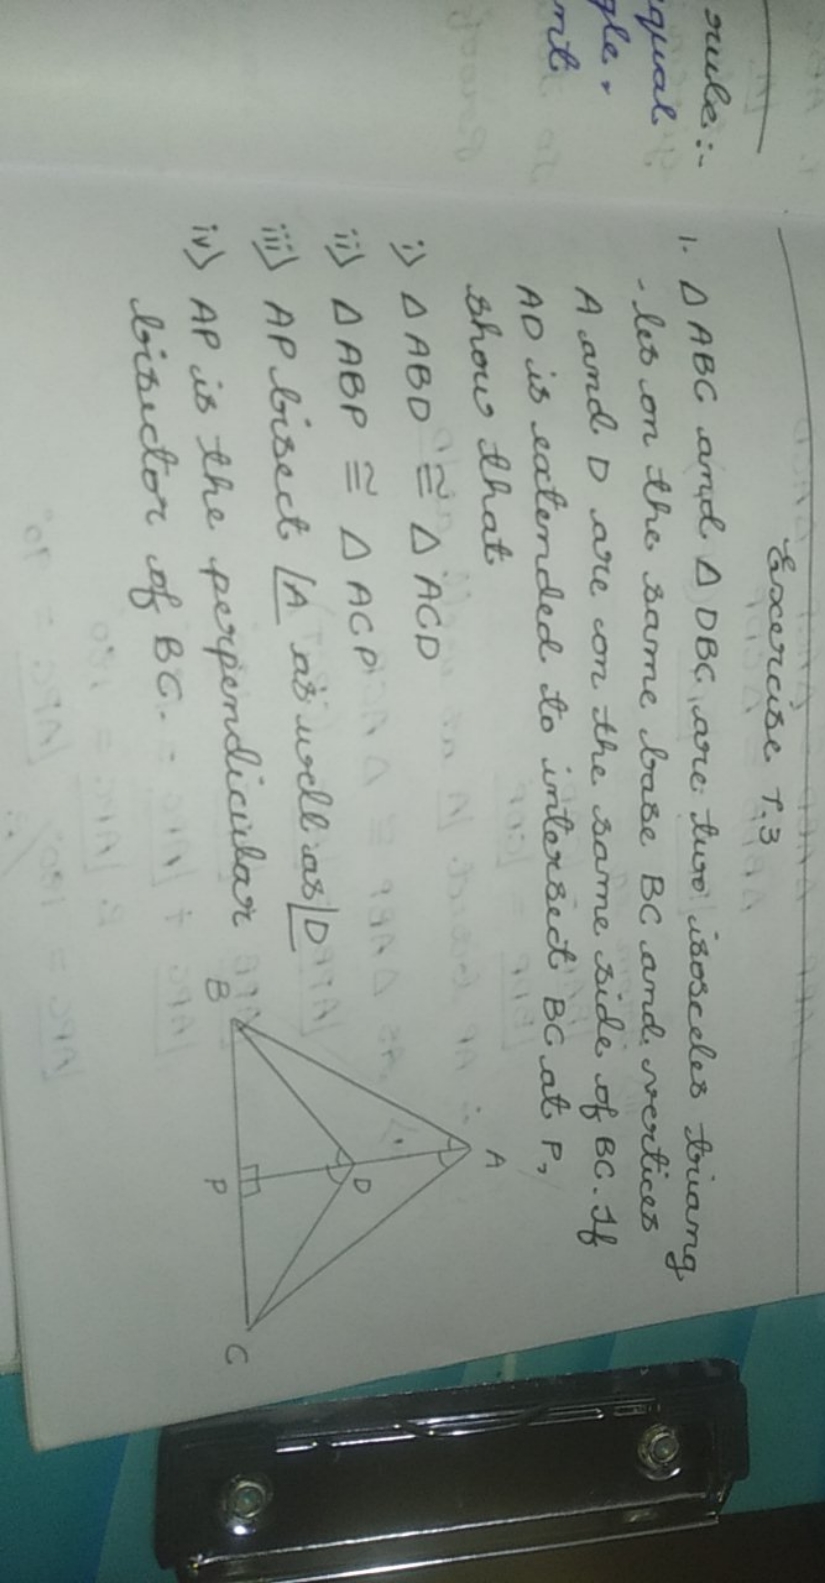 rule :-
equal
gle.
nt
Exercise 7.3
1. Δ ABC and Δ DBC are two isosceles triang
-les on the same base BC and vertices
A and D are on the same side of BC. If
AD is extended to intersect BC at P,
show that
i) Δ ABD ≅ Δ ACD
ii) Δ ABP ≅ Δ ACP
iii) AP bisect ∠A as well as ∠D
iv) AP is the perpendicular
bisector of BC.
A
B
D
P
C